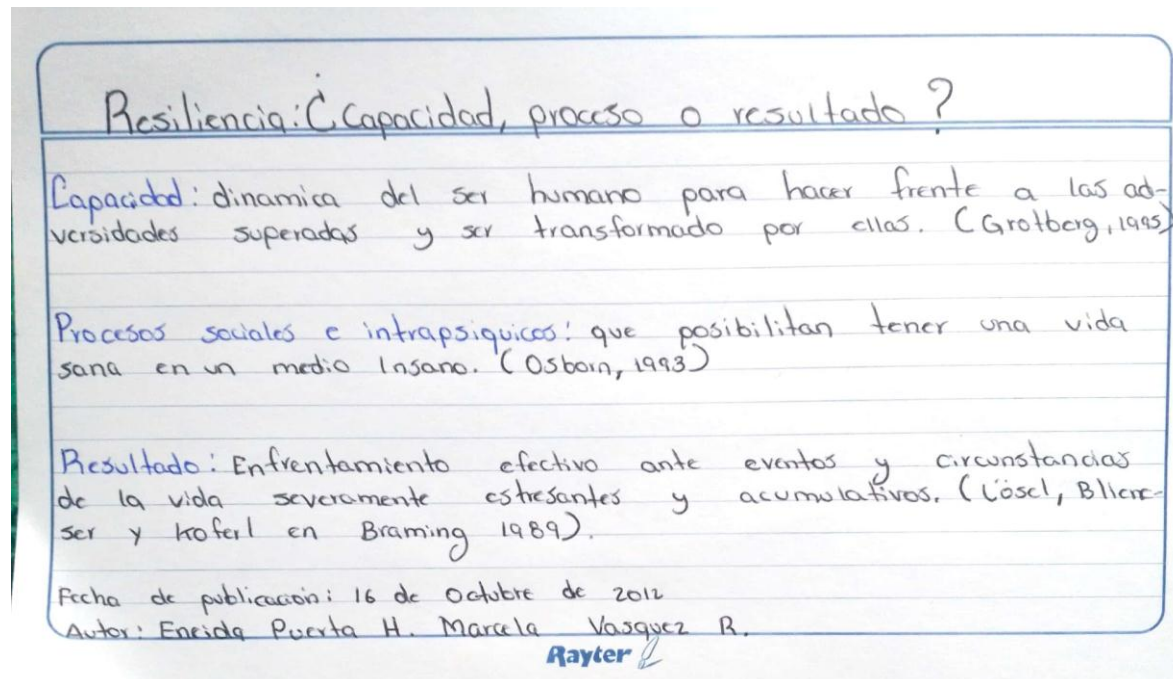 Resiliencia: ¿Capacidad, proceso o resultado?
Capacidad: dinamica del ser humano para hacer frente a las ad-
versidades superadas y ser transformado por ellas. (Grotberg, 1995)
Procesos sociales e intrapsiquicos: que posibilitan tener una vida
sana en un medio Insano. (Osborn, 1993)
Resultado: Enfrentamiento efectivo ante eventos y circunstancias
de la vida severamente estresantes y acumulativos. (Lösel, Bliene-
ser y Koferl en Braming 1989).
Fecha de publicacion: 16 de Octubre de 2012
Autor: Eneida Puerta H. Marcela Vasquez R.
Rayter